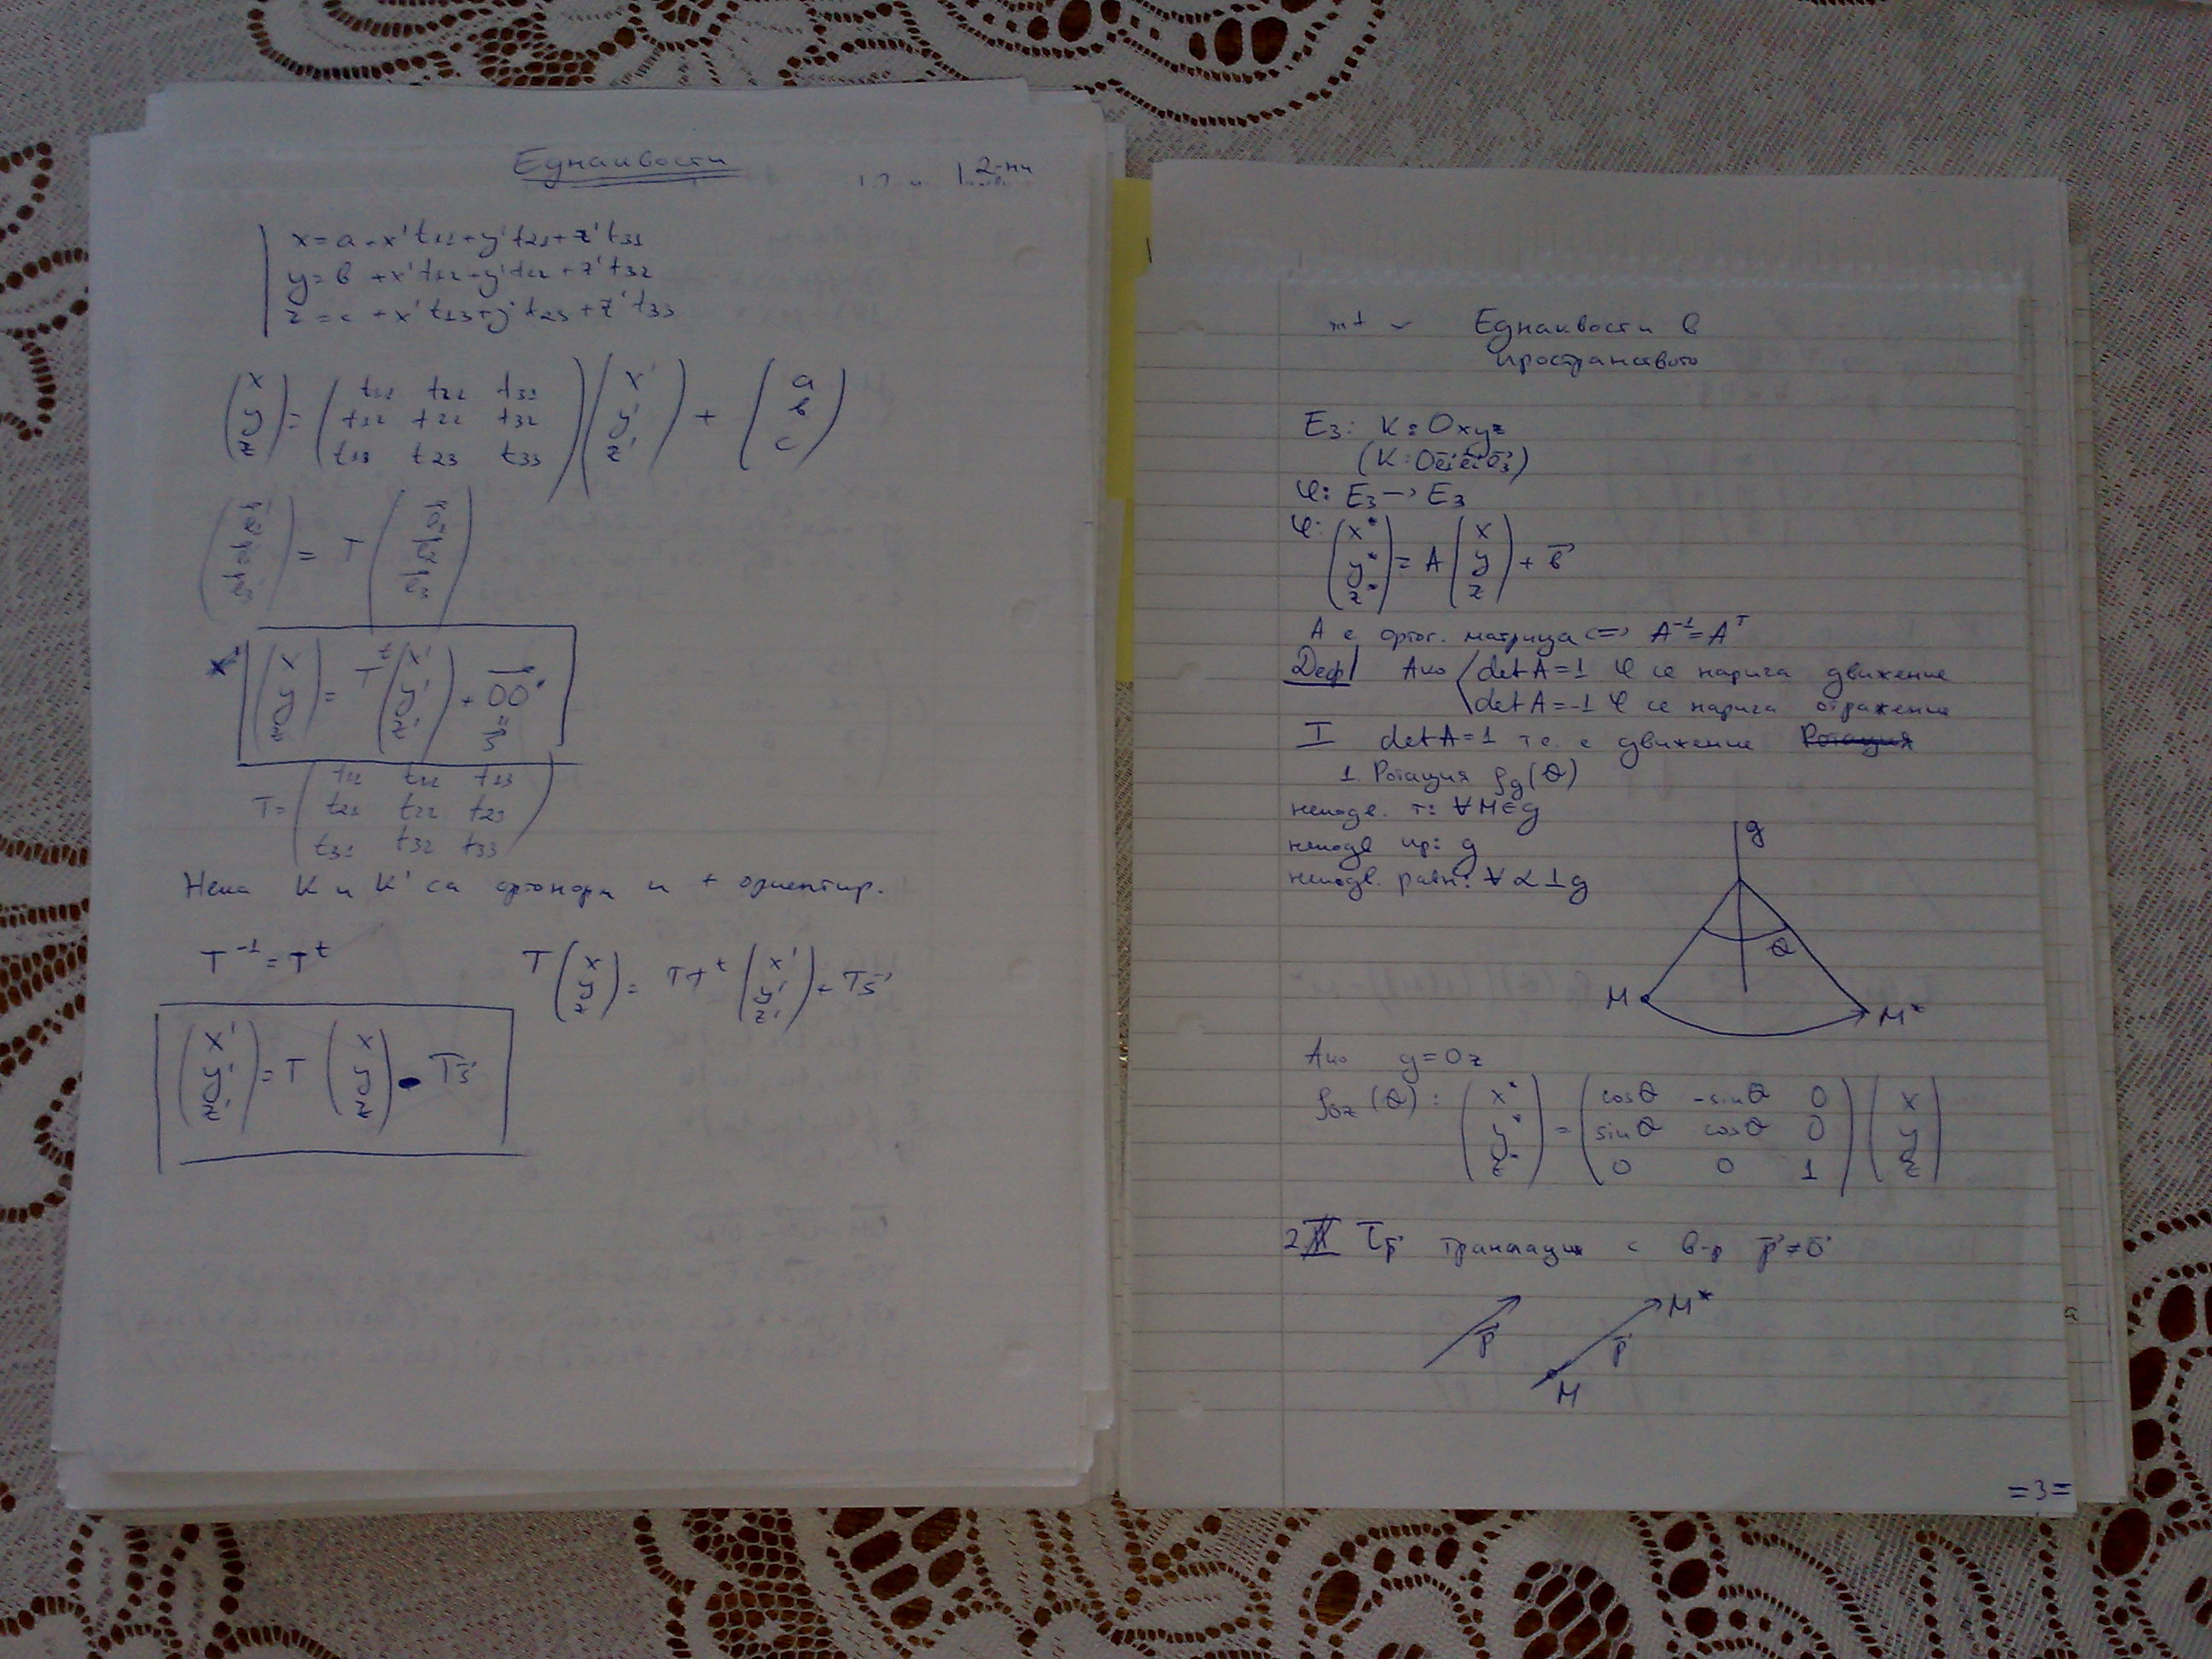 Еднаквости
2-ри
x = a + x' t11 + y' t21 + z' t31
y = b + x' t12 + y' t22 + z' t32
z = c + x' t13 + y' t23 + z' t33
(x y z) = (t11 t21 t31 t12 t22 t32 t13 t23 t33) (x' y' z') + (a b c)
(e1' e2' e3') = T (e1 e2 e3)
(x y z) = T^t (x' y' z') + OO'
s
T = (t11 t12 t13 t21 t22 t23 t31 t32 t33)
Нека K и K' са ортонорм и + ориентир.
T^-1 = T^t
T (x y z) = TT^t (x' y' z') + Ts
(x' y' z') = T (x y z) - Ts
Еднаквости в
пространството
E3: K = Oxyz
(K: Oe1e2e3)
φ: E3 → E3
φ: (x* y* z*) = A (x y z) + b
A е ортог. матрица <=> A^-1 = A^T
Деф/ Ако det A = 1 φ се нарича движение
det A = -1 φ се нарича отражение
I det A = 1 т.е. е движение Ротация
1. Ротация ρg(θ)
неподв. т: ∀ M ∈ g
неподв пр: g
неподв. равн: ∀ α ⊥ g
g
θ
M
M*
Ако g = Oz
ρOz(θ): (x* y* z*) = (cosθ -sinθ 0 sinθ cosθ 0 0 0 1) (x y z)
2 τp транслация с в-р p ≠ o
p
M*
p
M
=3=